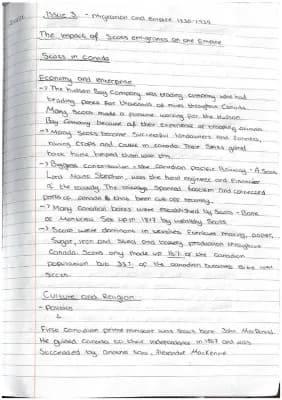 Issue 3 - Migration and empire 1830-1939
The impact of Scots emigrants on the Empire
Scots in Canada
Economy and enterprise
-> The Hudson Bay Company was trading company who had
trading posts for thousands of miles throughout Canada.
Many Scots made a fortune working for the Hudson
Bay Company because of their experience of trapping animals
-> Many Scots became successful landowners and farmers,
raising crops and cattle in Canada. Their skills gained
back home helped them with this.
-> Biggest contribution - the Canadian Pacific Railway. A Scot,
Lord Mount Stephen, was the head engineer and financier
of the railway. The railways spanned and connected
parts of Canada that been cut off recently.
-> Many Canadian banks were established by Scots - Bank
of Montreal Set up in 1817 by wealthy Scots.
-> Scots were dominant in textiles, furniture making, paper,
Sugar, iron and Steel and bakery production throughout
Canada. Scots only made up 15% of the Canadian
population but 33% of the Canadian business elite were
Scots.
Culture and Religion
- Politics
↓
First Canadian prime minister was Scots born John MacDonald.
He guided Canada to their independence in 1867 and was
Succeeded by another Scot, Alexander Mackenzie